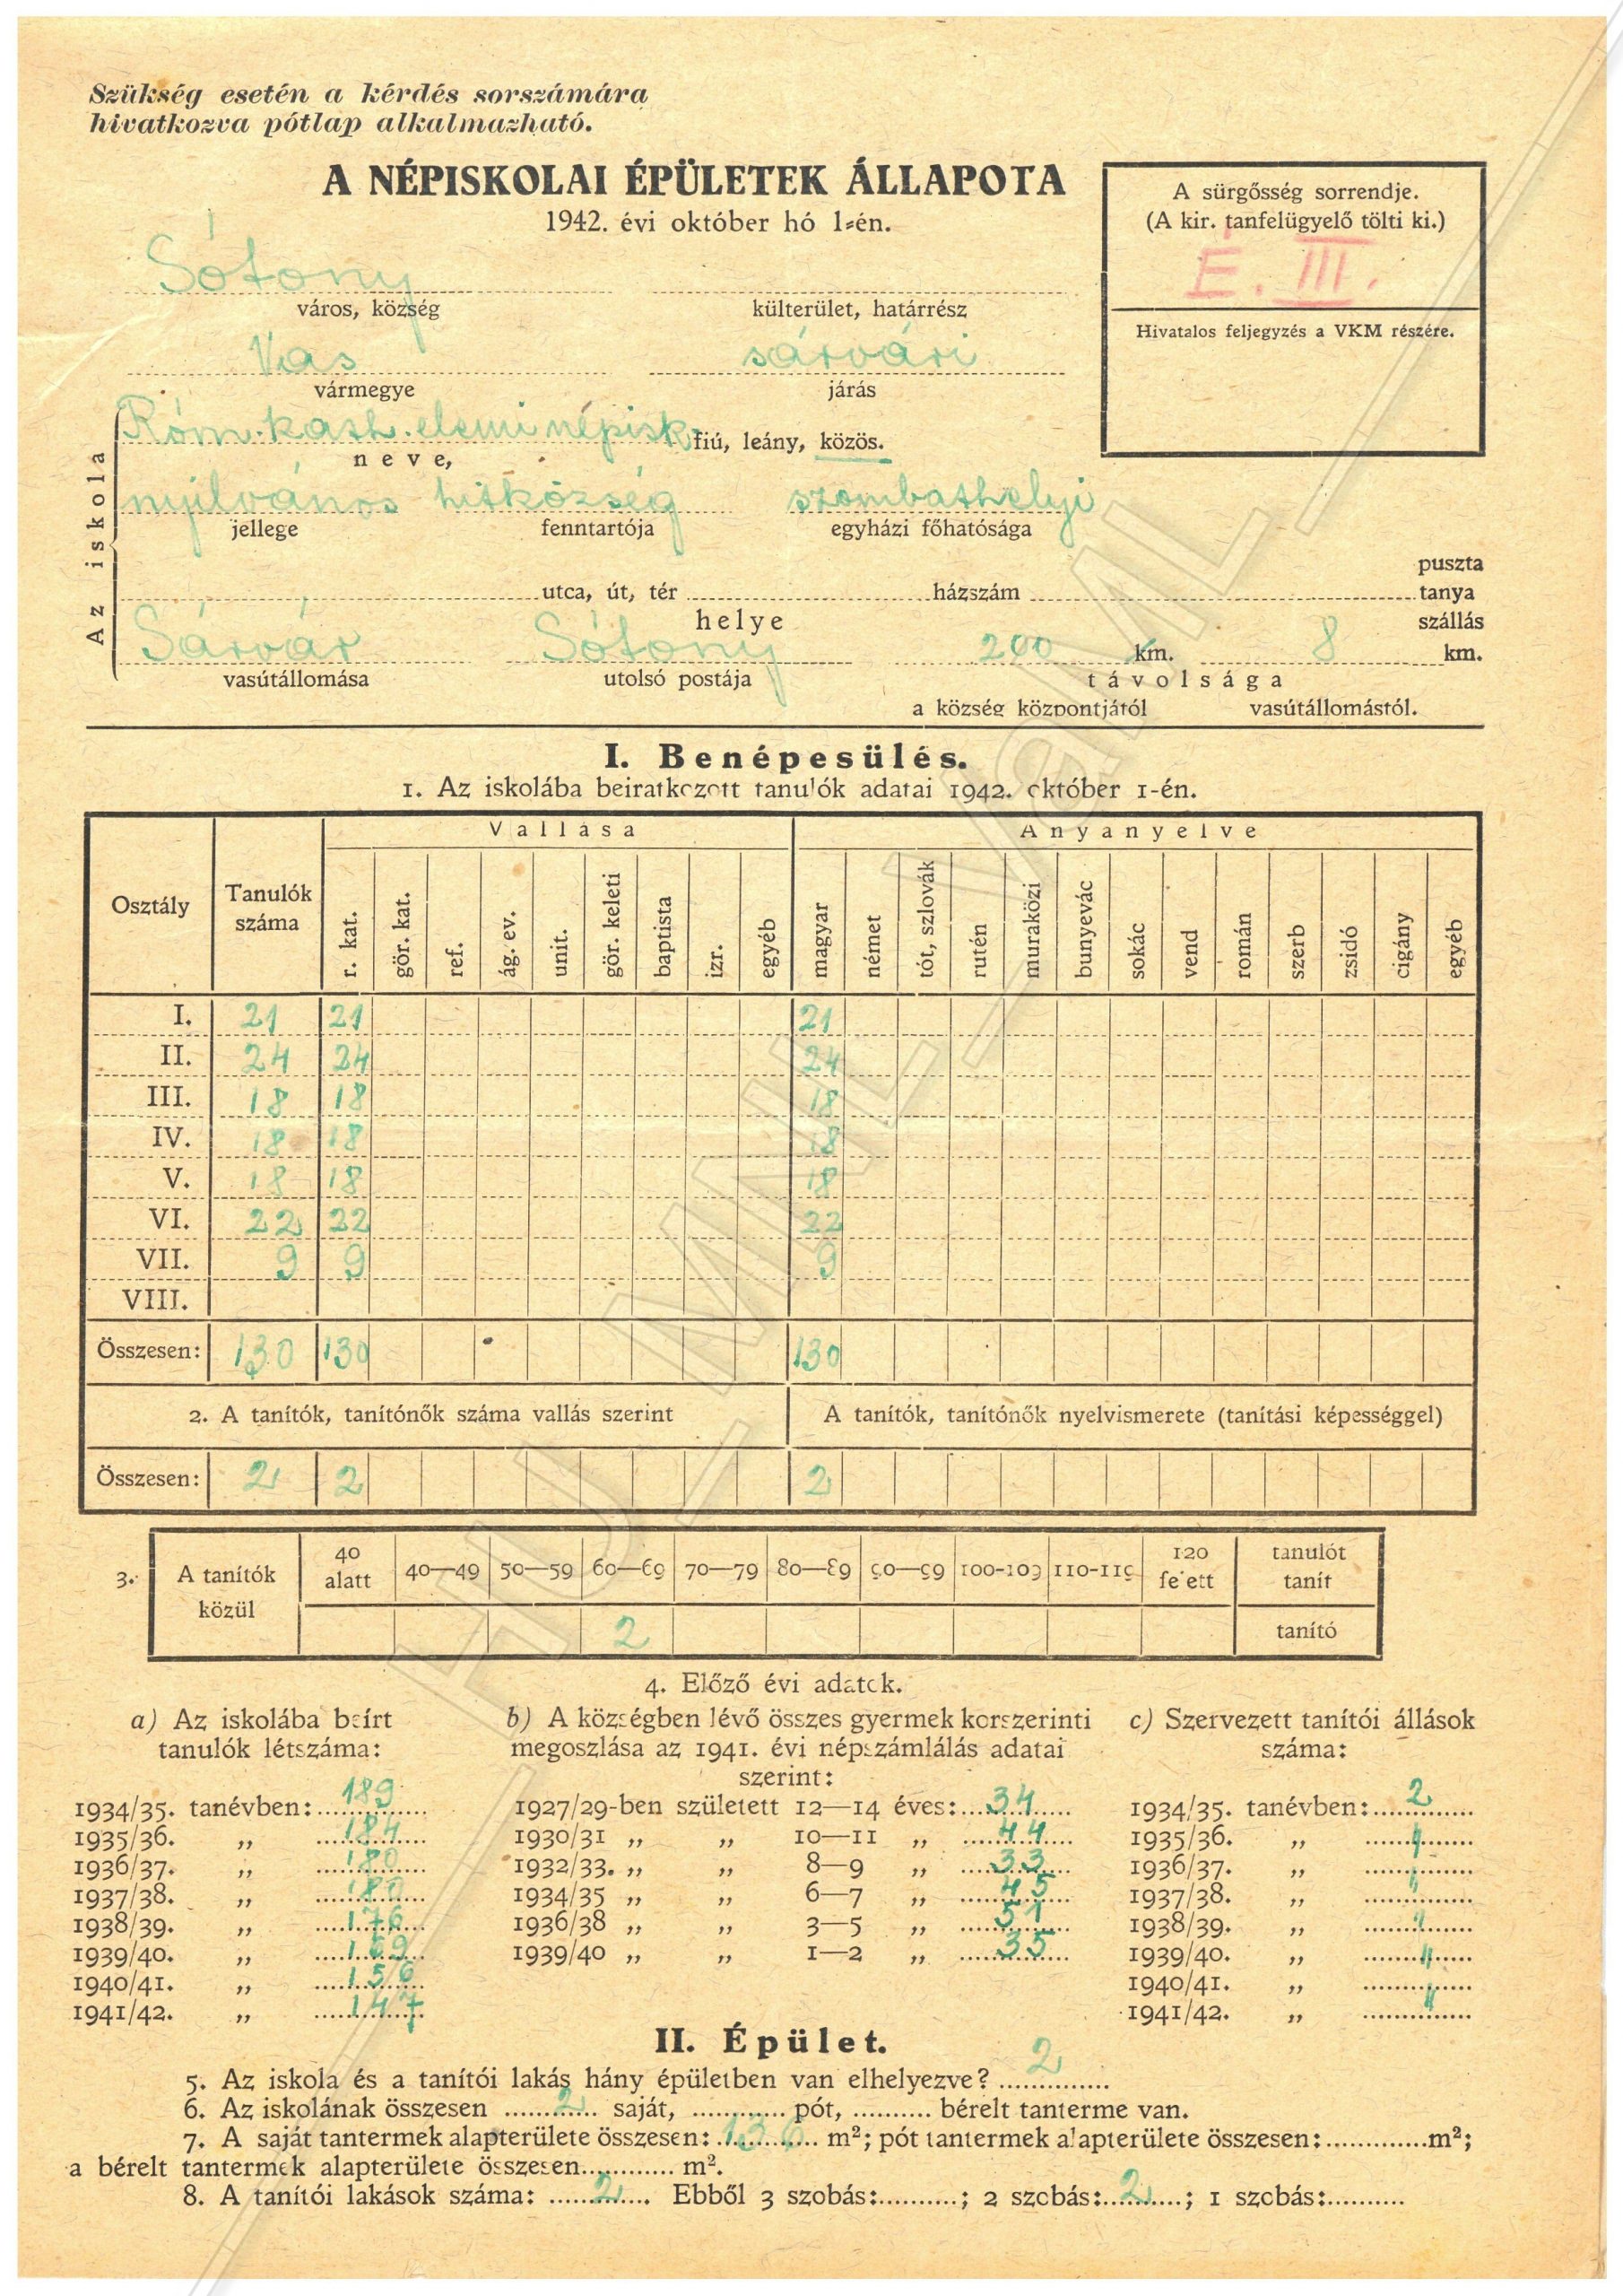 Szükség esetén a kérdés sorszámára
hivatkozva pótlap alkalmazható.
A NÉPISKOLAI ÉPÜLETEK ÁLLAPOTA
1942. évi október hó 1-én.
A sürgősség sorrendje.
(A kir. tanfelügyelő tölti ki.)
É. III.
Hivatalos feljegyzés a VKM részére.
Sótony
város, község külterület, határrész
Vas sárvári
vármegye járás
Az iskola
Róm. kath. elemi népisk. fiú, leány, közös.
neve,
nyilvános hitközség szombathelyi
jellege fenntartója egyházi főhatósága
puszta
utca, út, tér házszám tanya
helye szállás
Sárvár Sótony 200 km. 8 km.
vasútállomása utolsó postája távolsága
a község központjától vasútállomástól.
I. Benépesülés.
1. Az iskolába beiratkozott tanulók adatai 1942. október 1-én.
Vallása Anyanyelve
Osztály Tanulók száma r. kat. gör. kat. ref. ág. ev. unit. gör. keleti baptista izr. egyéb magyar német tót, szlovák rutén muraközi bunyevác sokác vend román szerb zsidó cigány egyéb
I. 21 21 21
II. 24 24 24
III. 18 18 18
IV. 18 18 18
V. 18 18 18
VI. 22 22 22
VII. 9 9 9
VIII.
Összesen: 130 130 130
2. A tanítók, tanítónők száma vallás szerint A tanítók, tanítónők nyelvismerete (tanítási képességgel)
Összesen: 2 2 2
3. A tanítók közül 40 alatt 40—49 50—59 60—69 70—79 80—89 90—99 100-109 110-119 120 felett tanulót tanít
2 tanító
4. Előző évi adatok.
a) Az iskolába beírt b) A községben lévő összes gyermek korszerinti c) Szervezett tanítói állások
tanulók létszáma: megoszlása az 1941. évi népszámlálás adatai száma:
szerint:
1934/35. tanévben: 189 1927/29-ben született 12—14 éves: 34 1934/35. tanévben: 2
1935/36. „ 184 1930/31 „ „ 10—11 „ 44 1935/36. „
1936/37. „ 180 1932/33. „ „ 8—9 „ 33 1936/37. „
1937/38. „ 180 1934/35 „ „ 6—7 „ 45 1937/38. „
1938/39. „ 176 1936/38 „ „ 3—5 „ 51 1938/39. „
1939/40. „ 169 1939/40 „ „ 1—2 „ 35 1939/40. „
1940/41. „ 156 1940/41. „
1941/42. „ 147 1941/42. „
II. Épület.
5. Az iskola és a tanítói lakás hány épületben van elhelyezve? 2
6. Az iskolának összesen 2 saját, pót, bérelt tanterme van.
7. A saját tantermek alapterülete összesen: 136 m²; pót tantermek alapterülete összesen: m²;
a bérelt tantermek alapterülete összesen m².
8. A tanítói lakások száma: 2. Ebből 3 szobás: ; 2 szobás: 2 ; 1 szobás:
HU_MNL_VaML